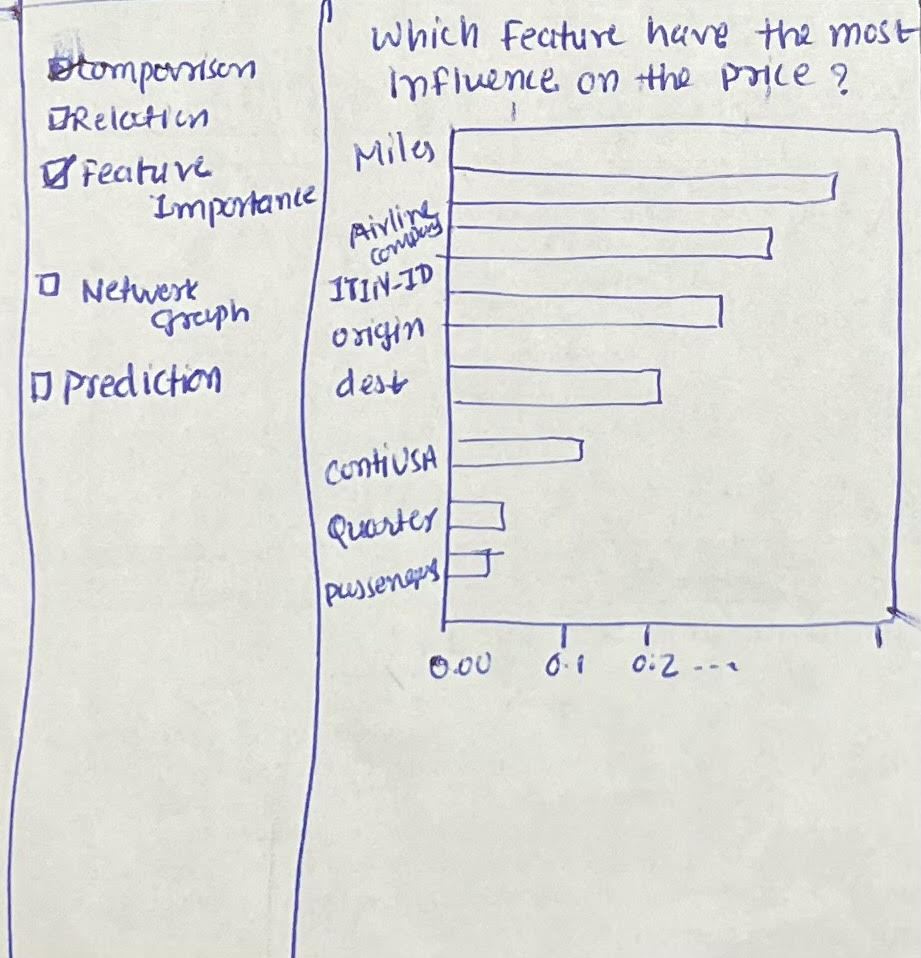 Comparison
Relation
Feature
Importance
Network
graph
Prediction
Which Feature have the most
Influence on the price ?
Miles
Airline
company
ITIN-ID
origin
dest
ContiUSA
Quarter
passengers
0.00 0.1 0.2 ---